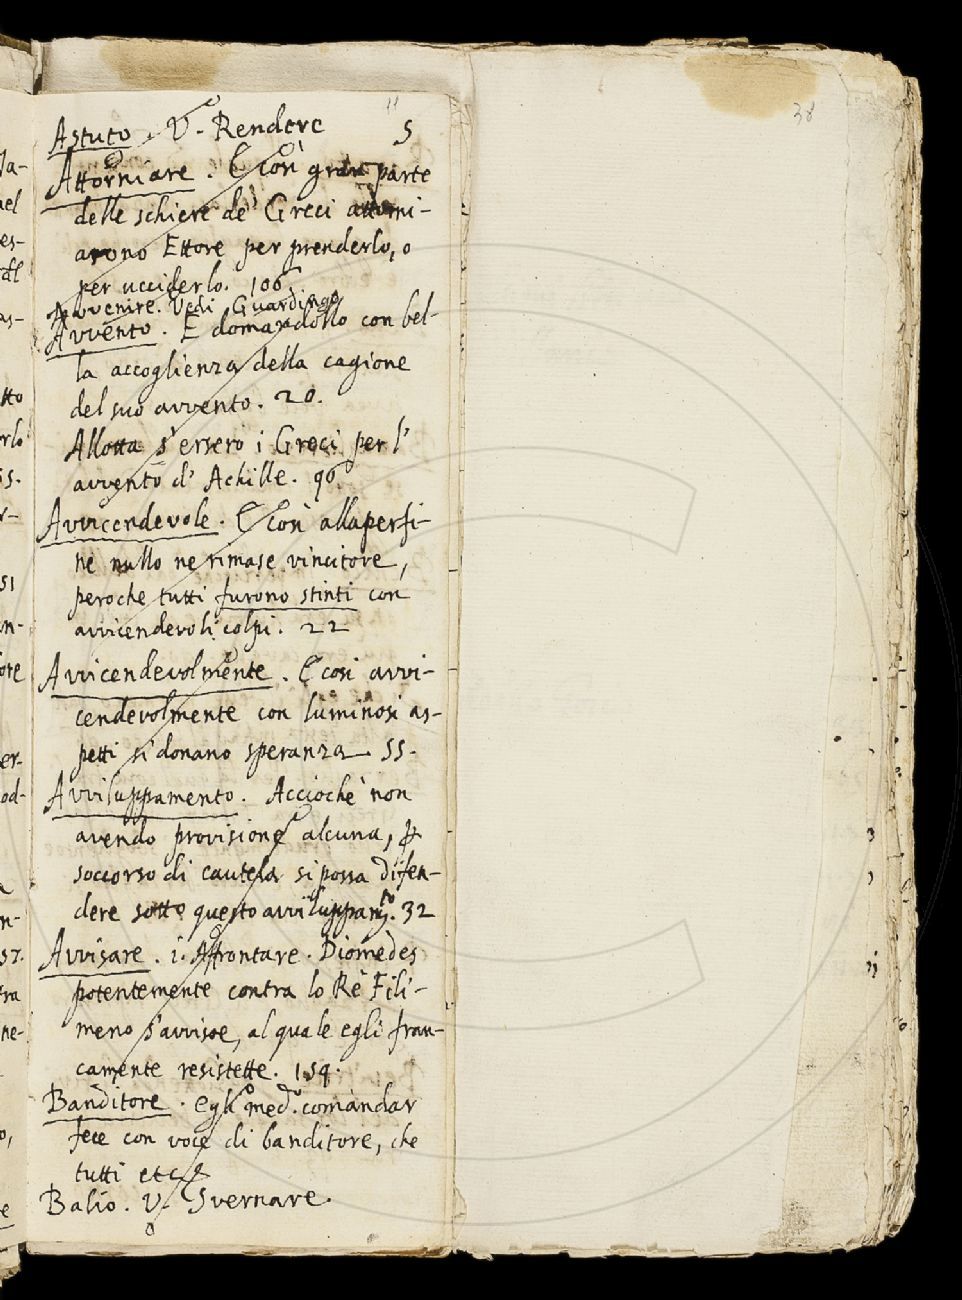 Astuto. V. Rendere
5
Attorniare. E con gran parte
delle schiere de' Greci attorni-
arono Ettore per prenderlo, o
per ucciderlo. 106.
Avvenire. Vedi Guardingo
Avvento. E domandollo con bel-
la accoglienza della cagione
del suo avvento. 20.
Allotta s'ersero i Greci per l'
avvento d' Achille. 96.
Avvicendevole. E così allaperfi-
ne nullo ne rimase vincitore,
peroche tutti furono stinti con
avvicendevoli colpi. 22
Avvicendevolmente. E così avvi-
cendevolmente con luminosi as-
petti si donano speranza. 55.
Avviluppamento. Acciochè non
avendo provisione alcuna, &
soccorso di cautela si possa difen-
dere sotto questo avviluppam.to 32
Avvisare. i. Affrontare. Diomedes
potentemente contra lo Rè Fili-
meno s'avvisoe, al quale egli fran-
camente resistette. 159.
Banditore. egli med.o comandar
fece con voce di banditore, che
tutti etc. &
Balio. V. Svernare.
38